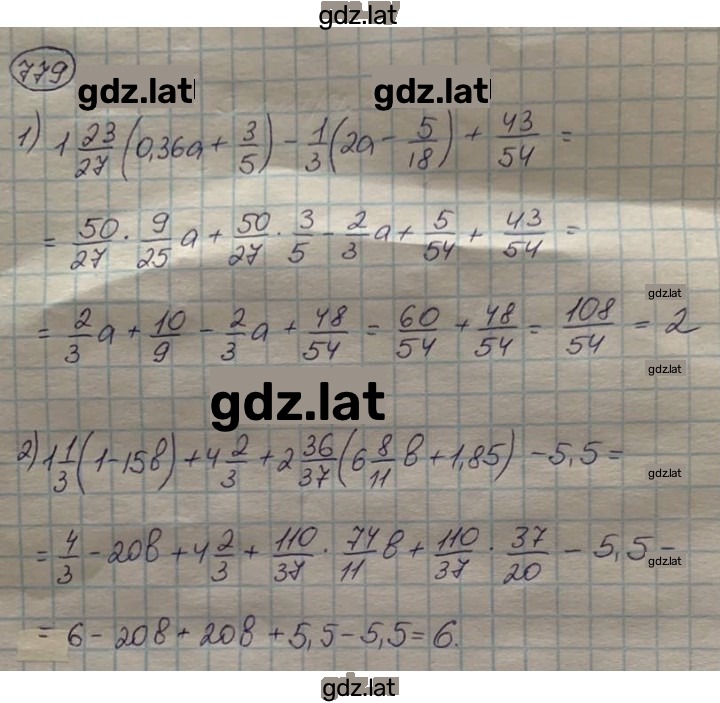 gdz.lat
779
gdz.lat gdz.lat
1) 1 23/27 (0,36a + 3/5) - 1/3 (2a - 5/18) + 43/54 =
= 50/27 · 9/25 a + 50/27 · 3/5 - 2/3 a + 5/54 + 43/54 =
gdz.lat
= 2/3 a + 10/9 - 2/3 a + 48/54 = 60/54 + 48/54 = 108/54 = 2
gdz.lat
gdz.lat
2) 1 1/3 (1-15b) + 4 2/3 + 2 36/37 (6 8/11 b + 1,85) - 5,5 =
gdz.lat
= 4/3 - 20b + 4 2/3 + 110/37 · 74/11 b + 110/37 · 37/20 - 5,5 =
gdz.lat
= 6 - 20b + 20b + 5,5 - 5,5 = 6.
gdz.lat